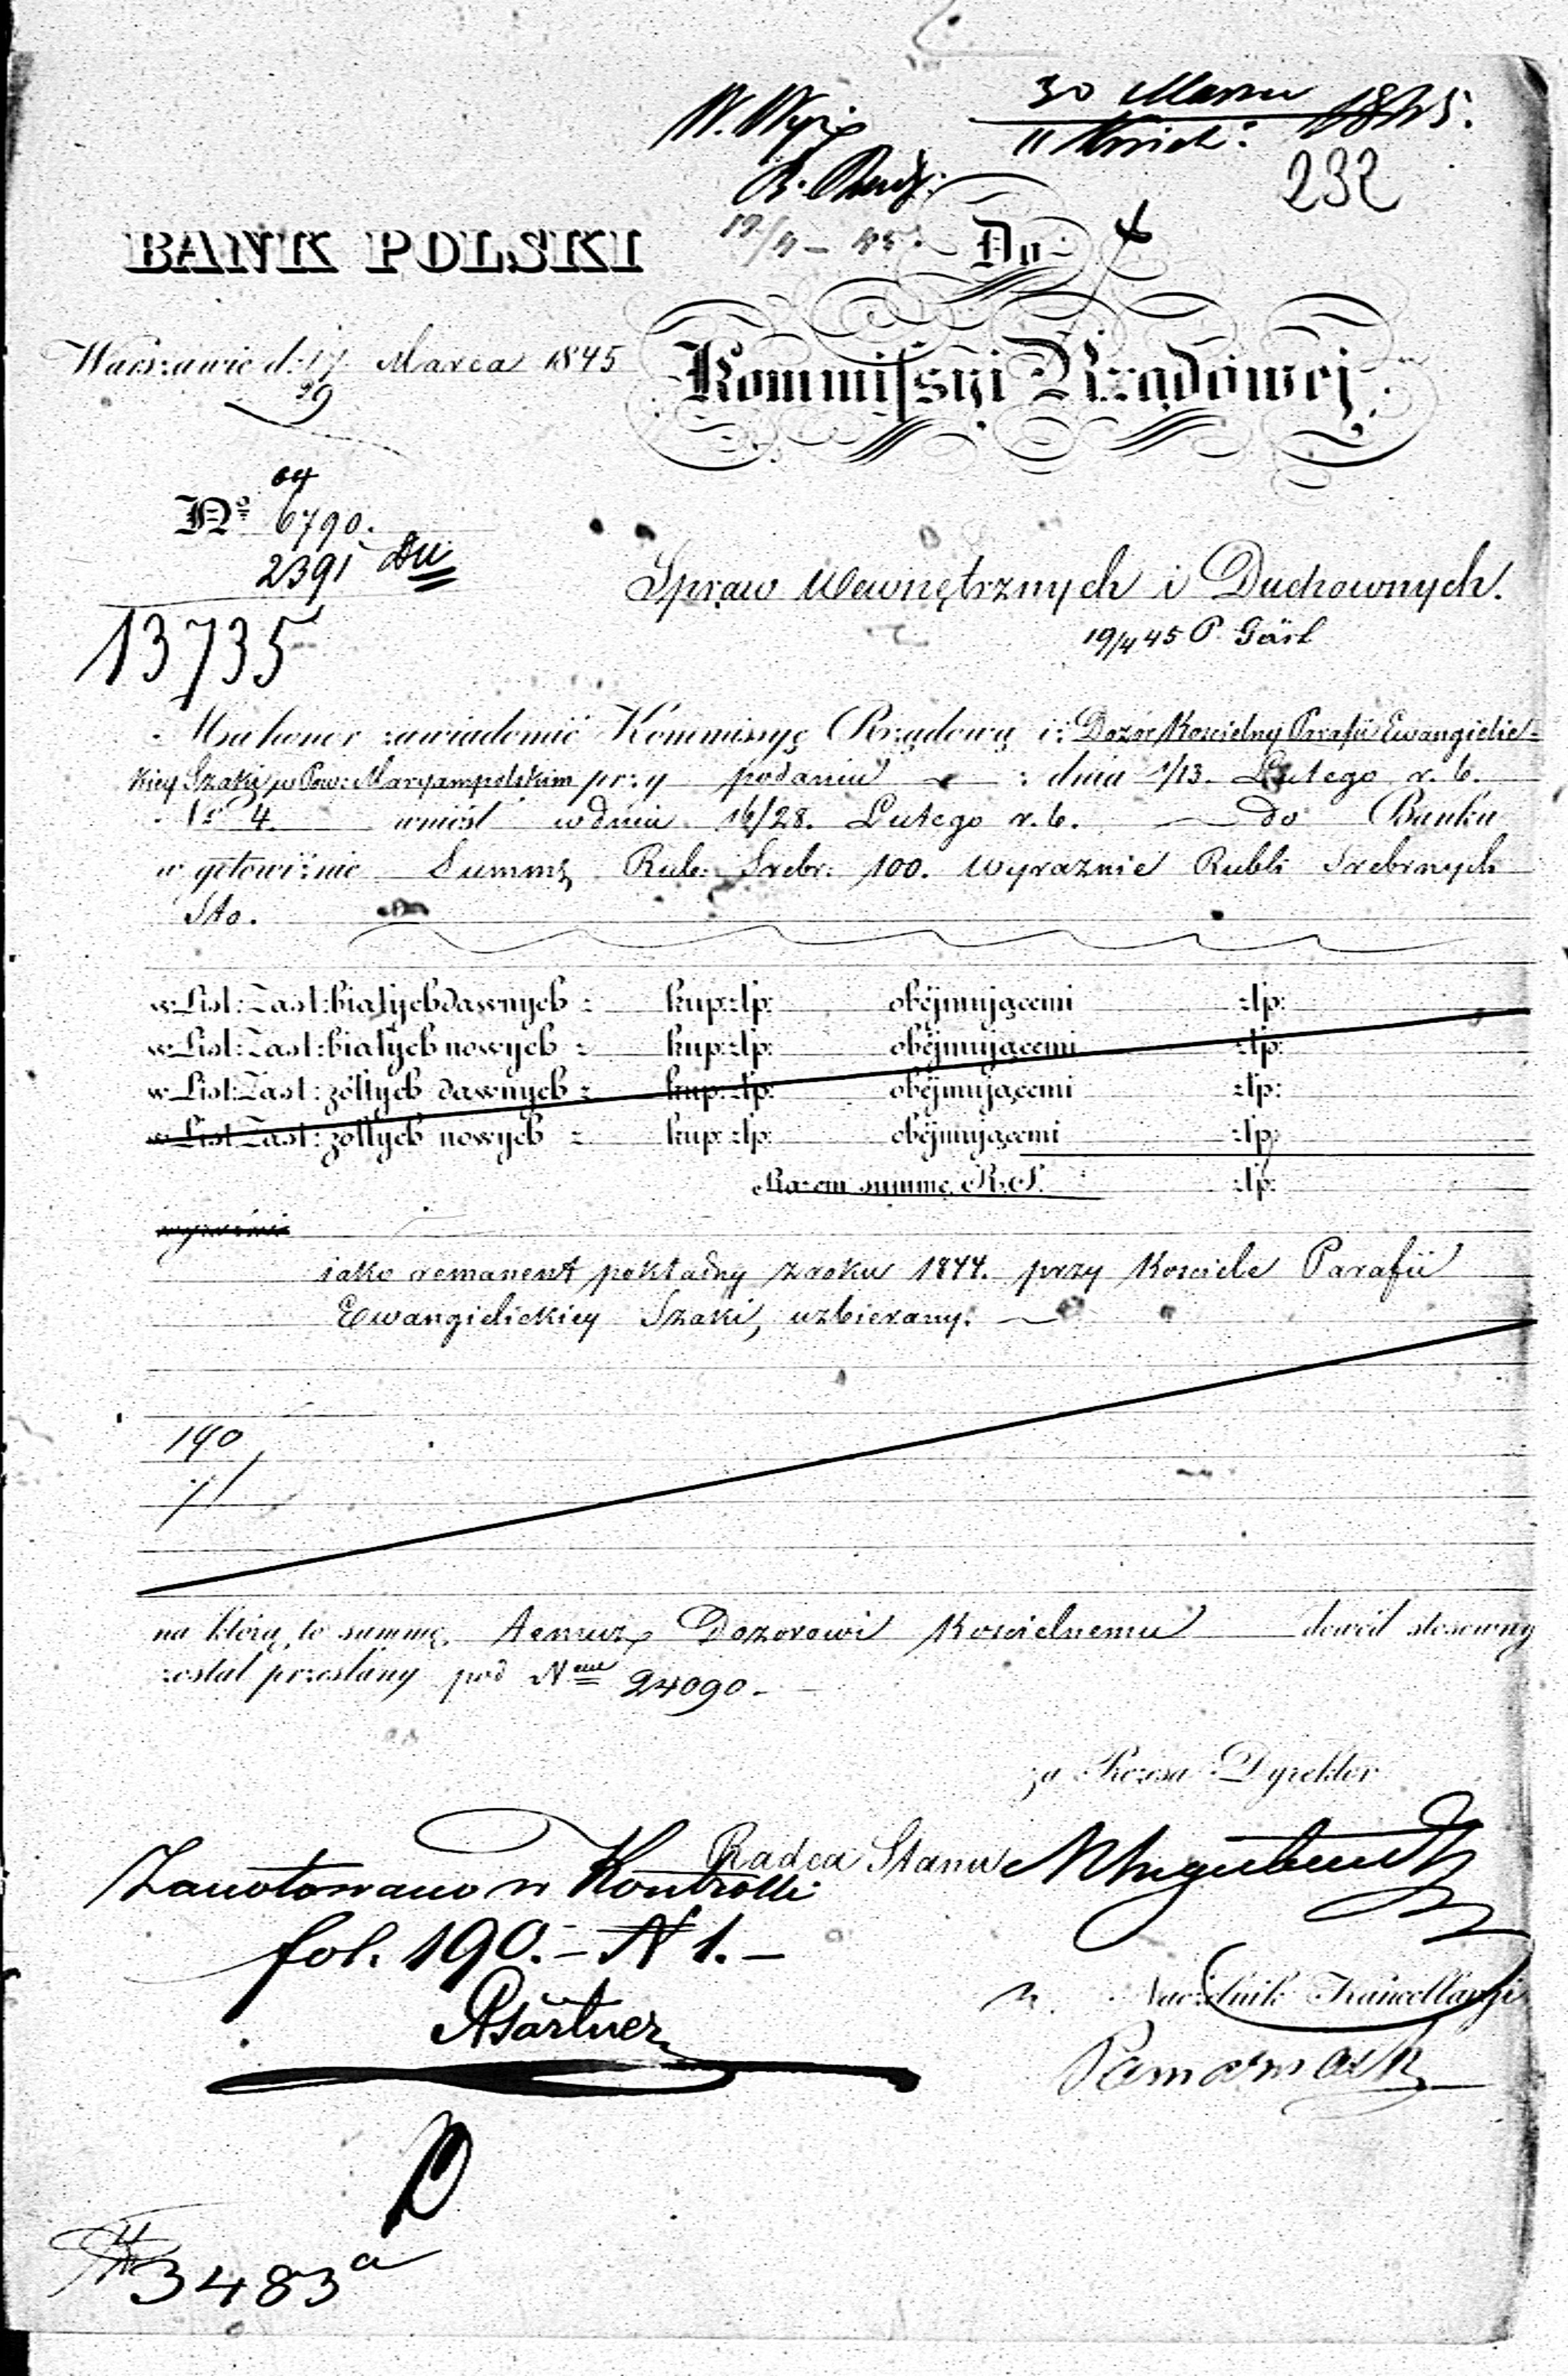 30 Marca
11 Kwiet: 1845.
232
19/4 - 45.
Do
BANK POLSKI
Kommissyi Rządowej
Warszawie d: 17 Marca 1845
29
64
Nº 6790.
2391
13735
Spraw Wewnętrznych i Duchownych.
19/4 45 P. Gärt
Ma honor zawiadomić Kommissyę Rządową iż Dozór Kościelny Parafii Ewangielic-
kiey Szaki w Pow: Maryampolskim przy podaniu z dnia 1/13. Lutego r. b.
Nº 4. wniósł w dniu 16/28. Lutego r. b. do Banku
w gotowiźnie Summę Rub: Srebr: 100. wyraźnie Rubli Srebrnych
Sto.
w List: Zast: białych dawnych z kup: złp: obejmującemi złp:
w List: Zast: białych nowych z kup: złp: obejmującemi złp:
w List: Zast: żółtych dawnych z kup: złp: obejmującemi złp:
w List: Zast: żółtych nowych z kup: złp: obejmującemi złp:
Razem summę R. S. złp:
wyraźnie
jako remanent pokładny z roku 1844. przy Kościele Parafii
Ewangielickiey Szaki, uzbierany.
190
1
na którą to summę, temuż Dozorowi Kościelnemu dowód stosowny
został przesłany pod Nem 24090.
za Prezesa Dyrektor
Radca Stanu
Zanotowano w Kontrolli
fol. 190. - N 1. -
Gärtner
Naczelnik Kancellaryi
3483 a